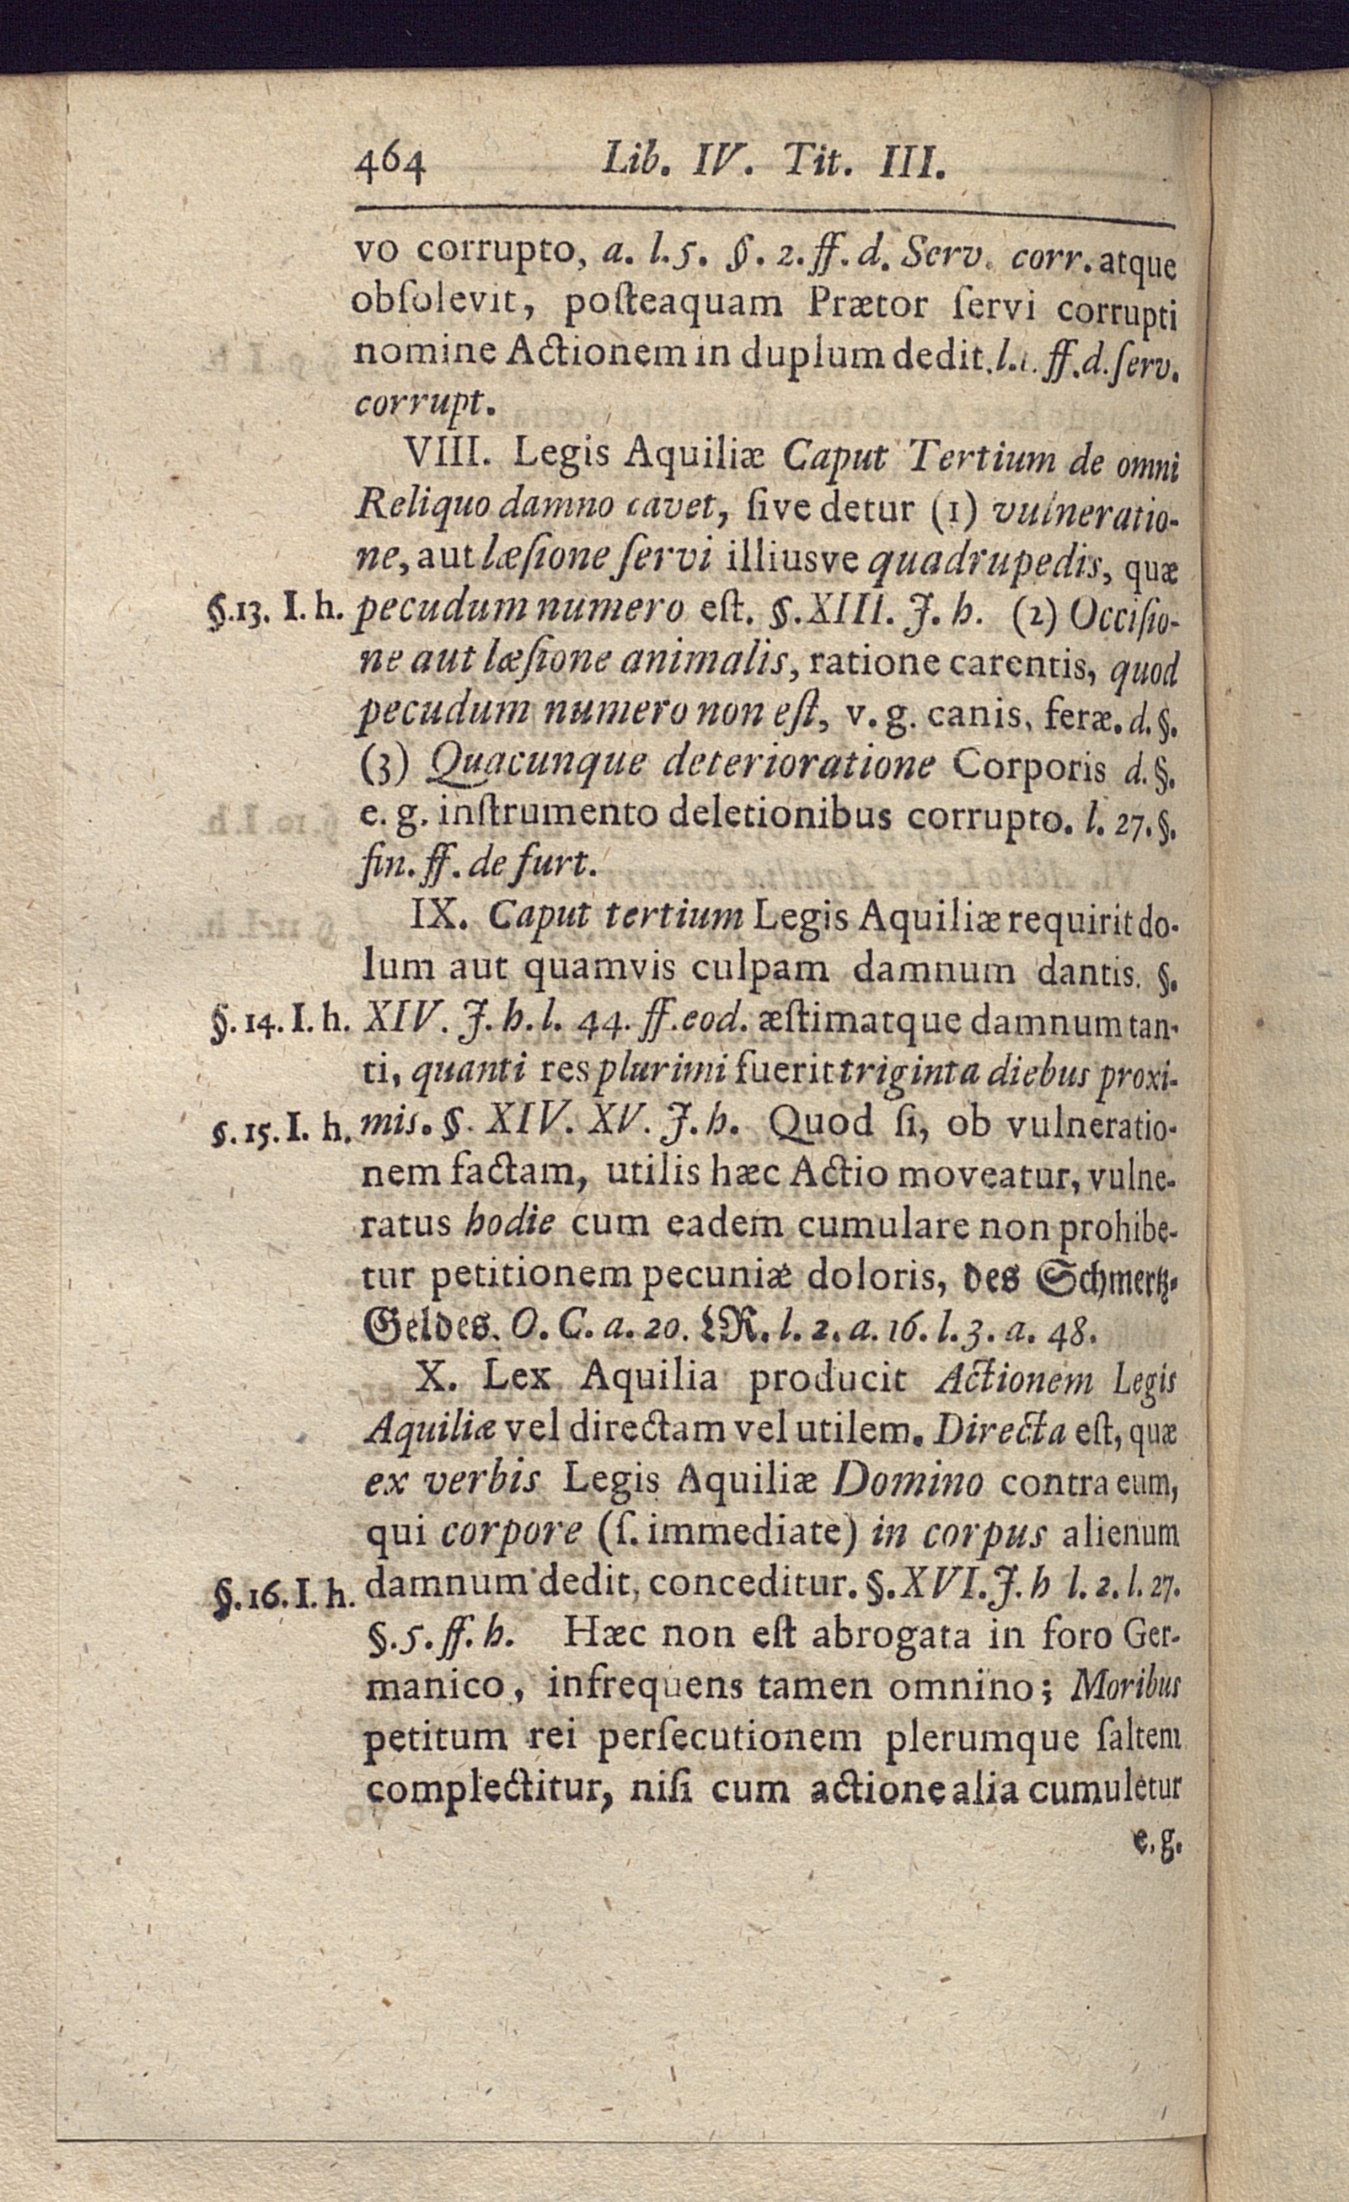 464 Lib. IV. Tit. III.
vo corrupto, a. l. 5. §. 2. ff. d. Serv. corr. atque
obſolevit, poſteaquam Prætor ſervi corrupti
nomine Actionem in duplum dedit. l. 1. ff. d. ſerv.
corrupt.
VIII. Legis Aquiliæ Caput Tertium de omni
Reliquo damno cavet, ſive detur (1) vulneratio-
ne, aut læſione ſervi illiusve quadrupedis, quæ
§. 13. I. h. pecudum numero eſt. §. XIII. J. h. (2) Occiſio-
ne aut læſione animalis, ratione carentis, quod
pecudum numero non eſt, v. g. canis, feræ. d. §.
(3) Quacunque deterioratione Corporis d. §.
e. g. inſtrumento deletionibus corrupto. l. 27. §.
fin. ff. de furt.
IX. Caput tertium Legis Aquiliæ requirit do-
lum aut quamvis culpam damnum dantis. §.
§. 14. I. h. XIV. J. h. l. 44. ff. eod. æſtimatque damnum tan-
ti, quanti res plurimi fuerit triginta diebus proxi-
§. 15. I. h. mis. §. XIV. XV. J. h. Quod ſi, ob vulneratio-
nem factam, utilis hæc Actio moveatur, vulne-
ratus hodie cum eadem cumulare non prohibe-
tur petitionem pecuniæ doloris, des Schmertz-
Geldes. O. C. a. 20. LR. l. 2. a. 16. l. 3. a. 48.
X. Lex Aquilia producit Actionem Legis
Aquiliæ vel directam vel utilem. Directa eſt, quæ
ex verbis Legis Aquiliæ Domino contra eum,
qui corpore (ſ. immediate) in corpus alienum
§. 16. I. h. damnum dedit, conceditur. §. XVI. J. h l. 2. l. 27.
§. 5. ff. h. Hæc non eſt abrogata in foro Ger-
manico, infrequens tamen omnino; Moribus
petitum rei perſecutionem plerumque ſaltem
complectitur, niſi cum actione alia cumuletur
e. g.